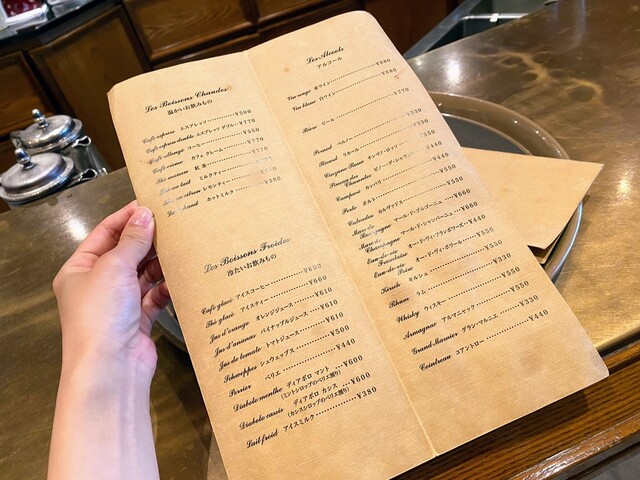 Les Boissons Chaudes
温かいお飲みもの
Café express エスプレッソ ¥500
Café express double エスプレッソ ダブル ¥770
Café allongé コーヒー ¥550
Café crème カフェ クレーム ¥770
Thé nature 紅茶 ¥770
Thé au lait ミルクティー
レモンティー
ホットミルク ¥380
Les Boissons Froides
冷たいお飲みもの
Café glacé アイスコーヒー ¥600
Thé glacé アイスティー ¥660
Jus d'orange オレンジジュース ¥610
Jus d'ananas パイナップルジュース ¥610
Jus de tomate トマトジュース ¥610
Schweppes シュウェップス ¥500
Perrier ペリエ ¥440
Diabolo menthe ディアボロ マント ¥600
(ミントシロップのペリエ割り)
Diabolo cassis ディアボロ カシス ¥600
(カシスシロップのペリエ割り)
Lait froid アイスミルク ¥380
Les Alcools
アルコール
Vin rouge 赤ワイン ¥880
Vin blanc 白ワイン ¥880
Bière ビール ¥770
Pernod ペルノー ¥330
Ricard リカール ¥330
Cognac Rouse
Pineau des
Charentes ピノー・デ・シャラント ¥440
Campari カンパリ ¥440
Porto ポルト ¥440
Calvados カルヴァドス ¥550
Marc de
Bourgogne マール・ド・ブルゴーニュ ¥660
Marc de
Champagne マール・ド・シャンパーニュ ¥660
Eau-de-vie
Framboise オー・ド・ヴィ・フランボワーズ ¥440
Eau-de-vie
Poire オー・ド・ヴィ・ポワール ¥550
Kirsch キルシュ ¥530
Rhum ラム ¥330
Whisky ウィスキー ¥550
Armagnac アルマニャック ¥550
Grand Marnier グラン・マルニエ ¥330
Cointreau コアントロー ¥440